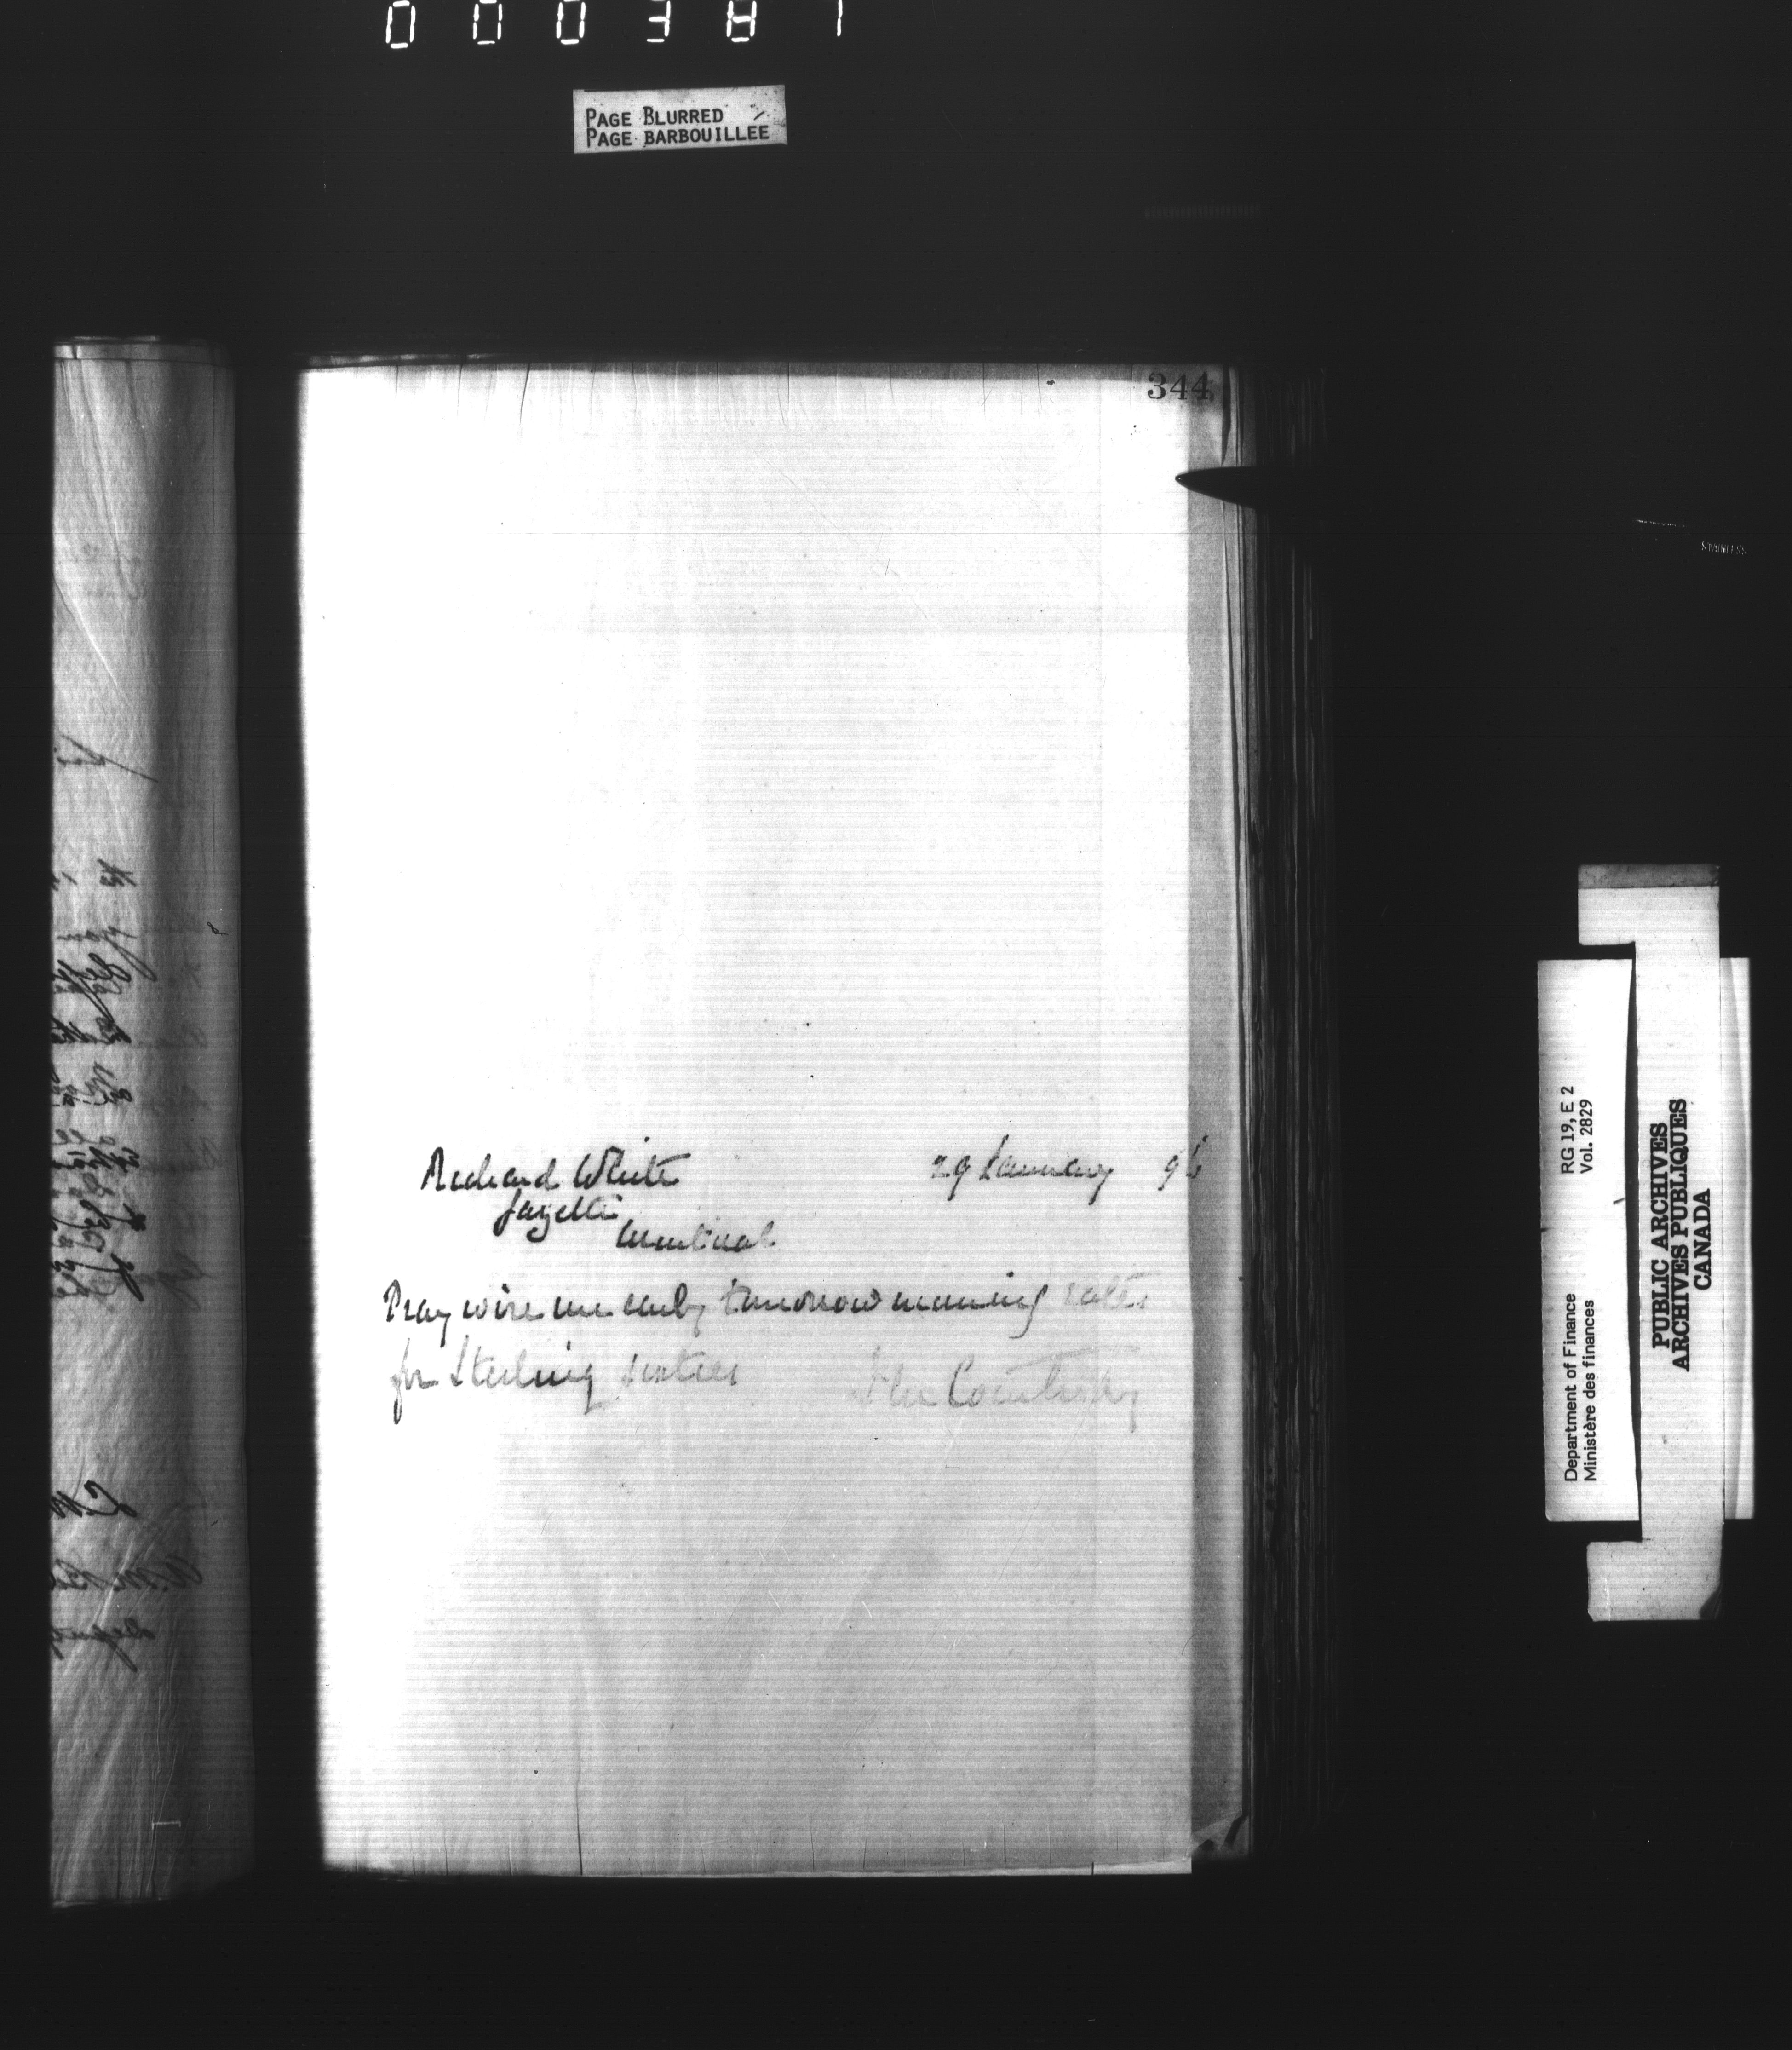 000381
PAGE BLURRED
PAGE BARBOUILLEE
344
Richard White 29 January 96
Gazette
Montreal
Pray wire me early tomorrow morning rates
for Sterling sixties J M Courtney
RG 19, E 2
Vol. 2829
Department of Finance
Ministère des finances
PUBLIC ARCHIVES
ARCHIVES PUBLIQUES
CANADA
STAINLESS